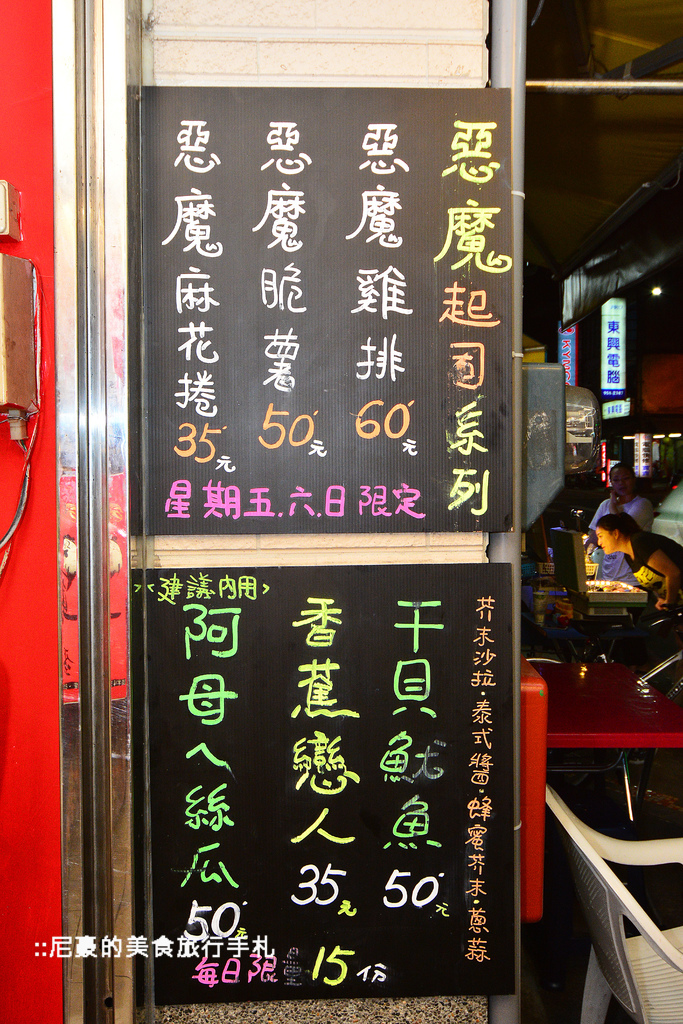 惡魔起司系列
惡魔雞排
60元
惡魔脆薯
50元
惡魔麻花捲
35元
星期五.六.日限定
芥末沙拉・泰式醬・蜂蜜芥末・蔥蒜
干貝魷魚
50元
香蕉戀人
35元
<建議內用>
阿母ㄟ絲瓜
50元
每日限
15份
東興電腦
::尼豪的美食旅行手札